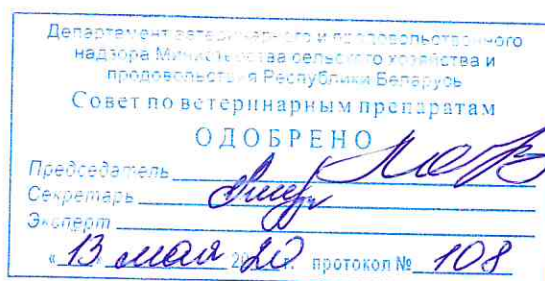 Департамент ветеринарного и продовольственного
надзора Министерства сельского хозяйства и
продовольствия Республики Беларусь
Совет по ветеринарным препаратам
ОДОБРЕНО
Председатель
Секретарь
Эксперт
« 13 » мая 2020 г. протокол № 108